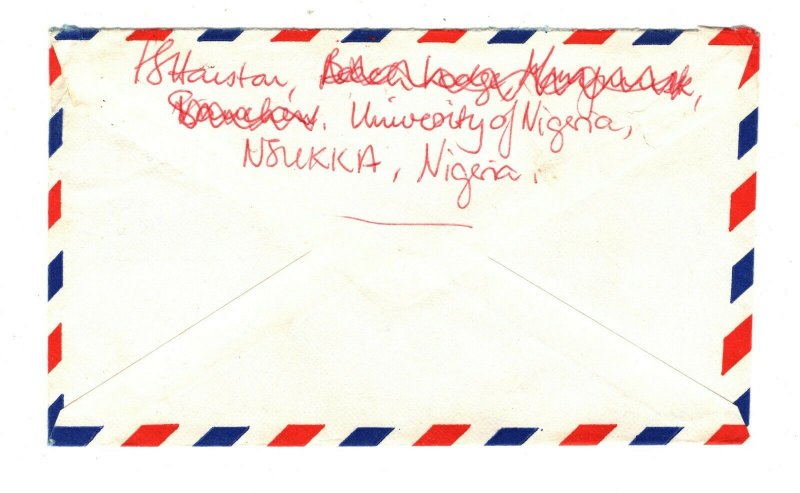 PS Haistan,
University of Nigeria,
NSUKKA, Nigeria.